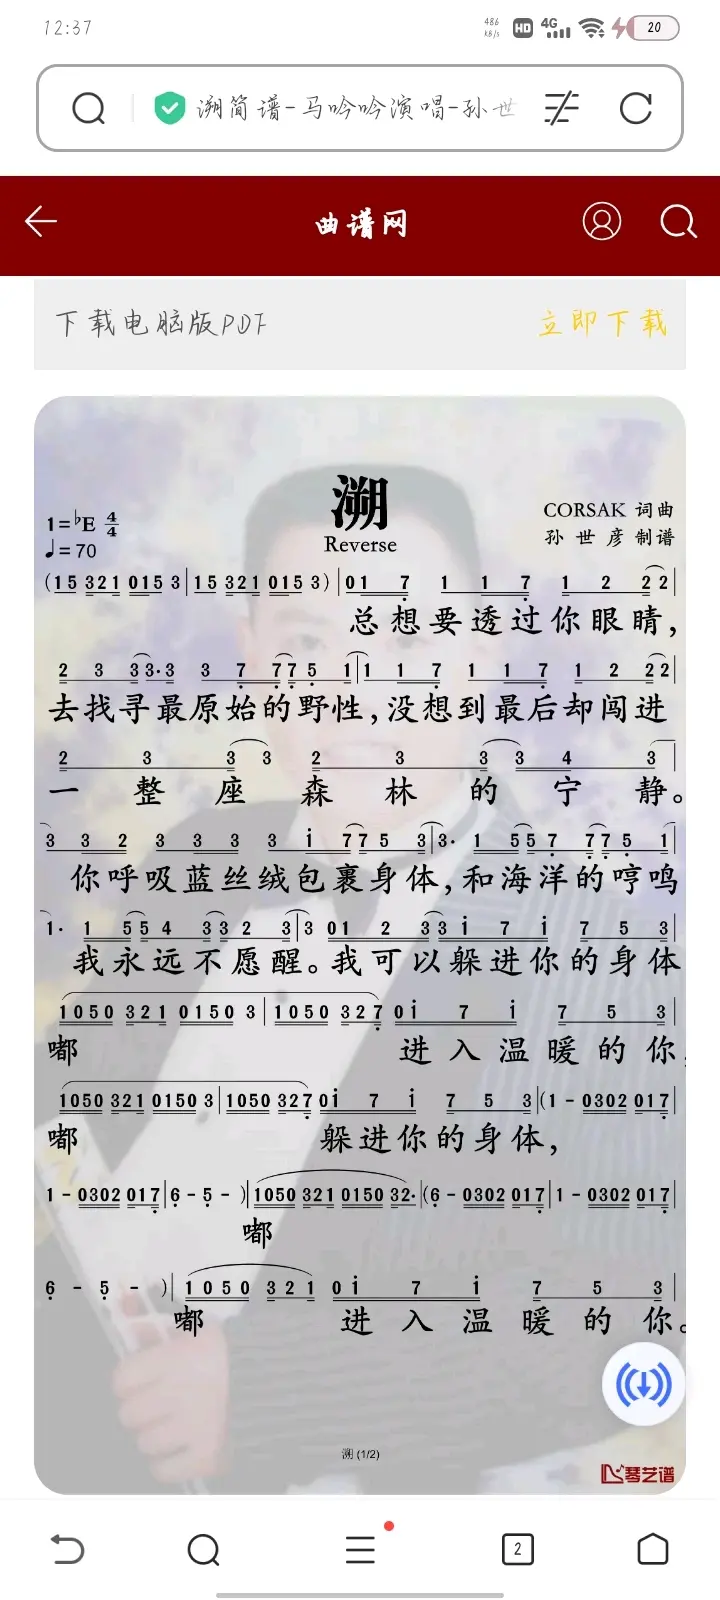 12:37
486 KB/s HD 4G 20
溯简谱-马吟吟演唱-孙世
曲谱网
下载电脑版PDF 立即下载
溯
Reverse
1=♭E 4/4
♩=70
CORSAK 词曲
孙世彦 制谱
(15 321 015 3|15 321 015 3)|01 7 1 1 7 1 2 2 2|
总想要透过你眼睛,
2 3 3 3·3 3 7 7 7 5 1|1 1 7 1 1 7 1 2 2 2|
去找寻最原始的野性,没想到最后却闯进
2 3 3 3 2 3 3 3 4 3|
一整座森林的宁静。
3 3 2 3 3 3 3 i 7 7 5 3|3· 1 5 5 7 7 7 5 1|
你呼吸蓝丝绒包裹身体,和海洋的哼鸣
1· 1 5 5 4 3 3 2 3|3 01 2 3 3 i 7 i 7 5 3|
我永远不愿醒。我可以躲进你的身体
1050 321 0150 3|1050 327 0i 7 i 7 5 3|
嘟 进入温暖的你,
1050 321 0150 3|1050 327 0i 7 i 7 5 3|(1 - 0302 017|
嘟 躲进你的身体,
1 - 0302 017|6 - 5 - )|1050 321 0150 32·|(6 - 0302 017|1 - 0302 017|
嘟
6 - 5 - )|1050 321 0i 7 i 7 5 3|
嘟 进入温暖的你。
溯 (1/2)
琴艺谱
2